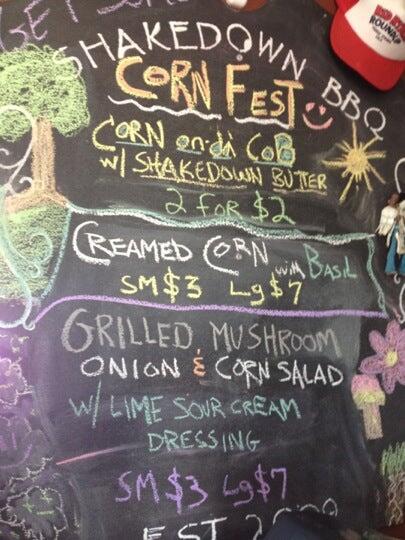 SHAKEDOWN BBQ
CORN FEST
CORN on-di COB
W/ SHAKEDOWN BUTTER
2 FOR $2
CREAMED CORN with BASIL
SM $3 Lg $7
GRILLED, MUSHROOM
ONION & CORN SALAD
W/ LIME SOUR CREAM
DRESSING
SM $3 Lg $7